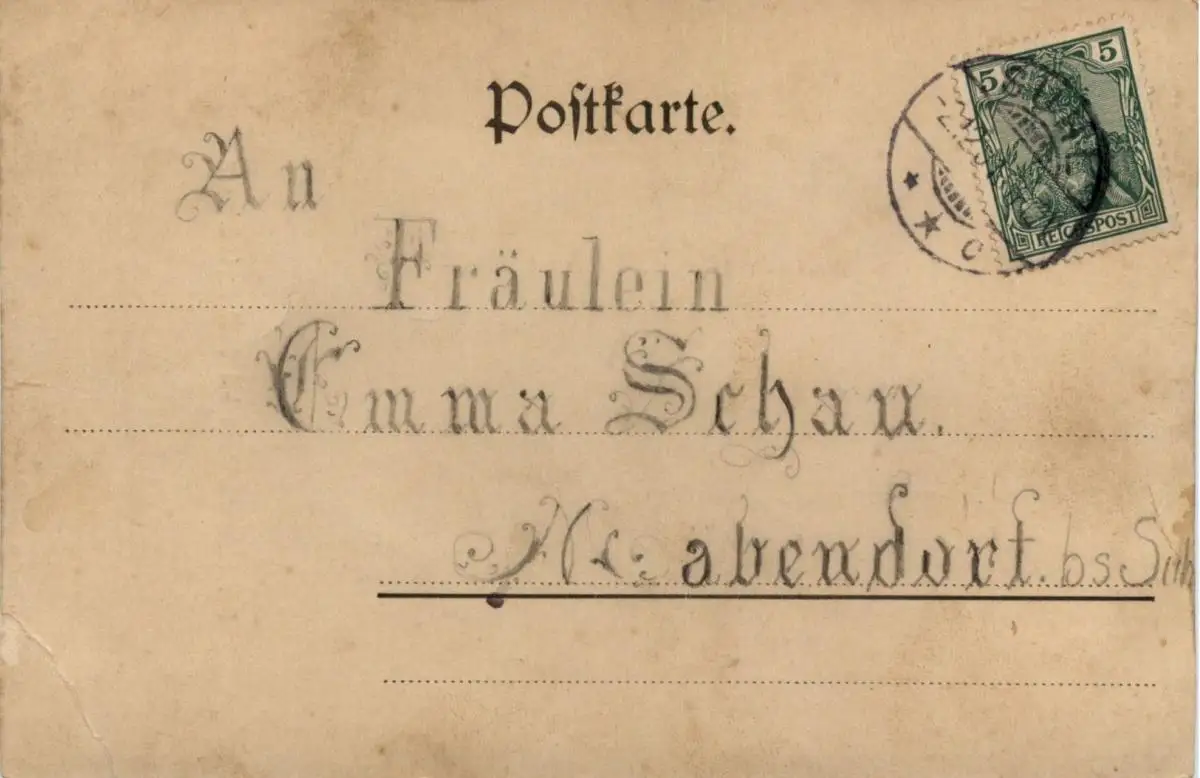 Postkarte.
5 5
SUHL
REICHSPOST
An
Fräulein
Emma Schau.
Mäbendorf. bs Suh